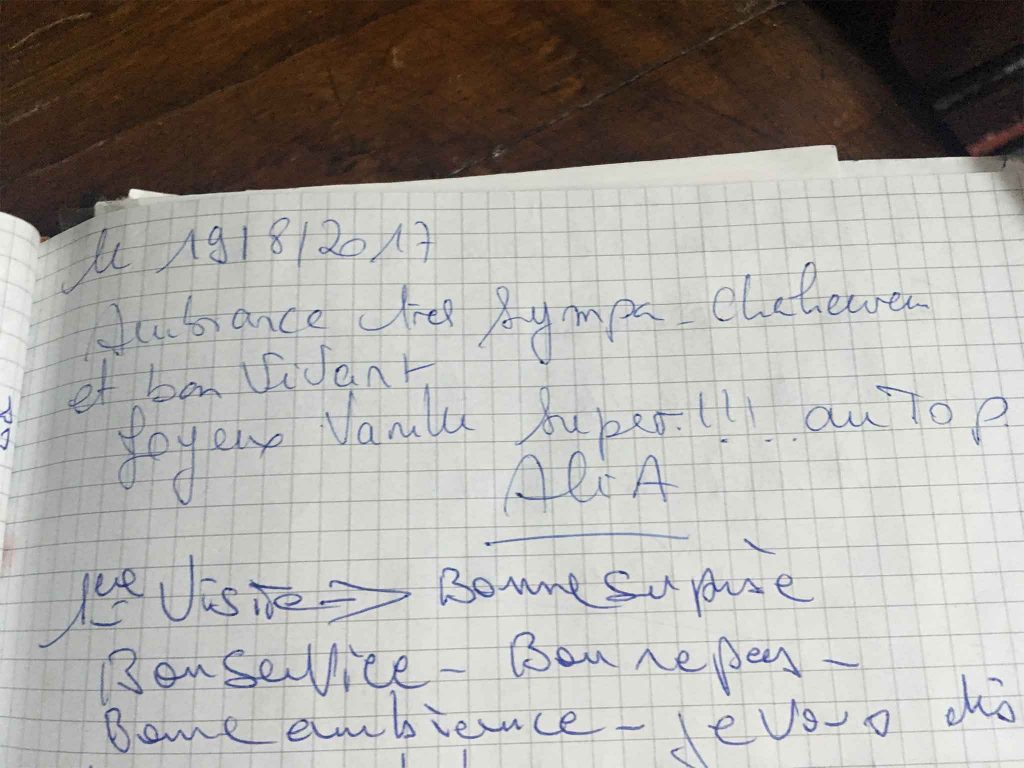 le 19/8/2017
Ambiance très Sympa - Chaleureux
et bon ViVant
Joyeux Super.!!!.. au Top
Ali A
1ere Visite => Bonne Suprise
Bon Service - Bon repas -
Bonne ambience - je vous dis